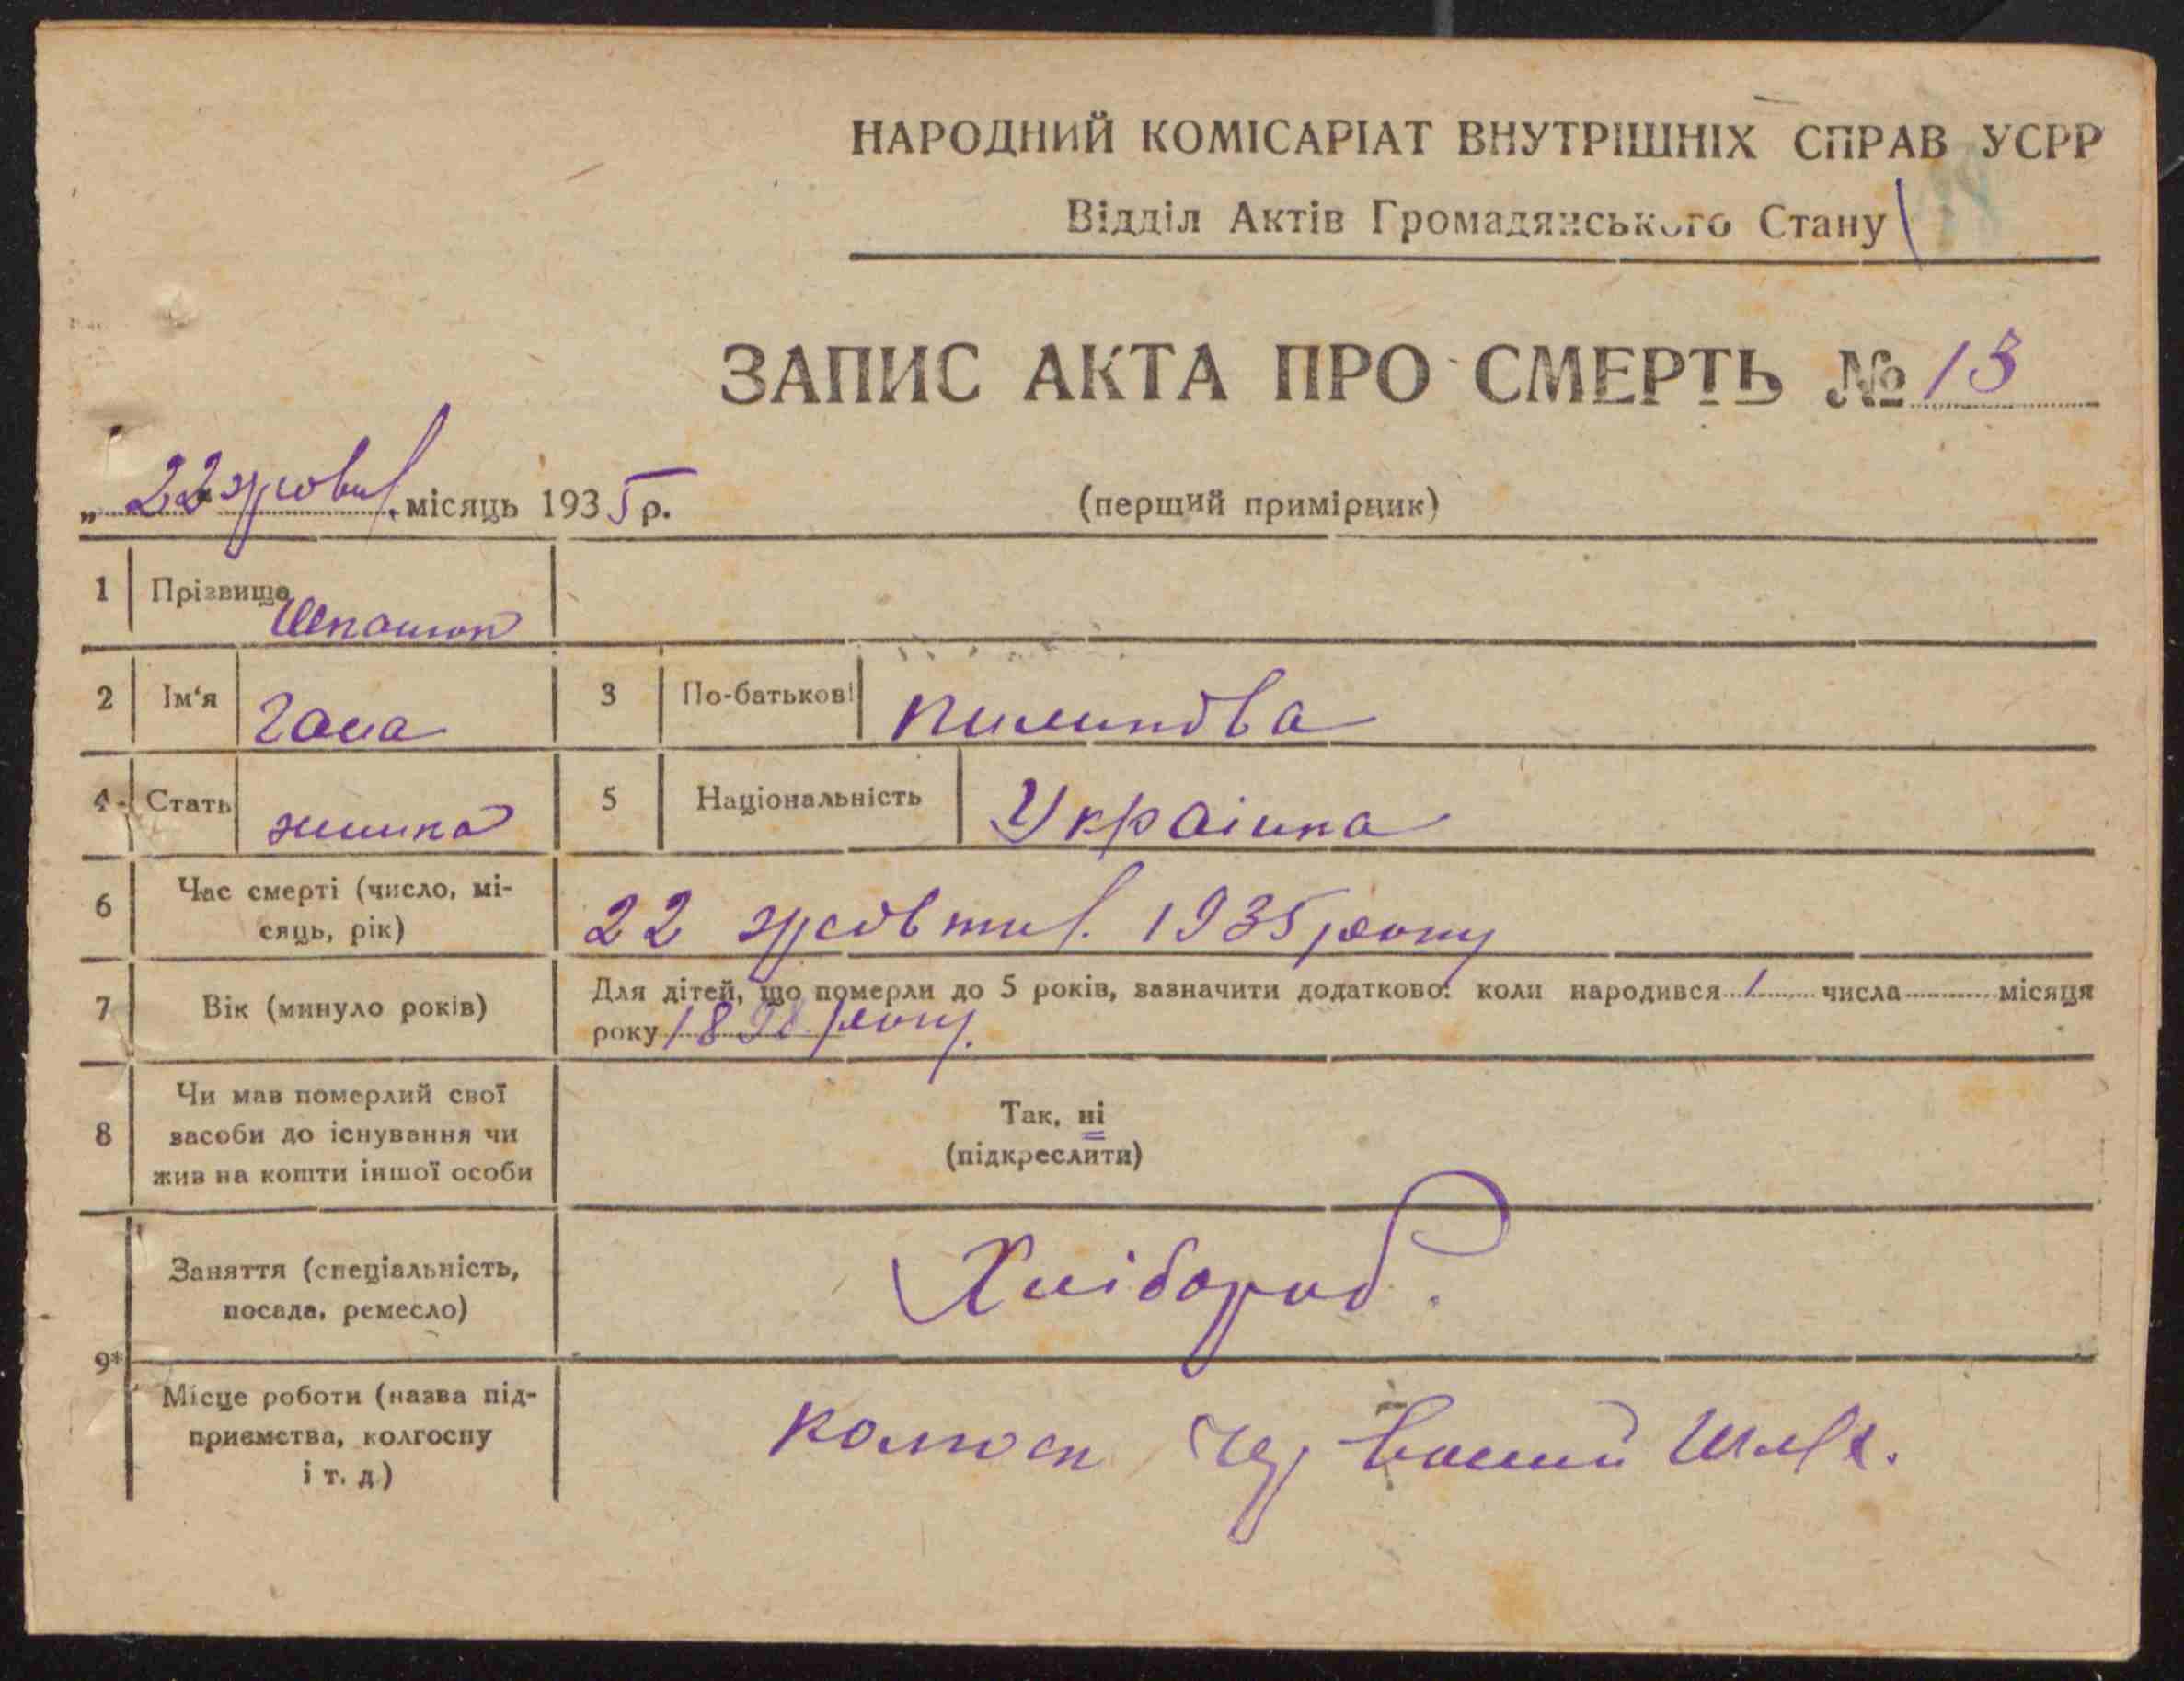 НАРОДНИЙ КОМІСАРІАТ ВНУТРІШНІХ СПРАВ УСРР
Відділ Актів Громадянського Стану
ЗАПИС АКТА ПРО СМЕРТЬ № 13
„ 22 жовт. місяць 1935 р.
(перщий примірник)
1 Прізвище
2 Ім'я Гана 3 По-батькові Пилипова
4 Стать жинка 5 Національність Українка
6 Час смерті (число, мі-
сяць, рік) 22 жовтня. 1935 року
7 Вік (минуло років) Для дітей, що померли до 5 років, зазначити додатково: коли народився 1 числа місяця
року 1898 року.
8 Чи мав померлий свої
засоби до існування чи
жив на кошти іншої особи
Так, ні
(підкреслити)
9* Заняття (спеціальність,
посада, ремесло) Хлібороб.
Місце роботи (назва під-
приємства, колгоспу
і т. д.) колгосп Червоний Шлях.